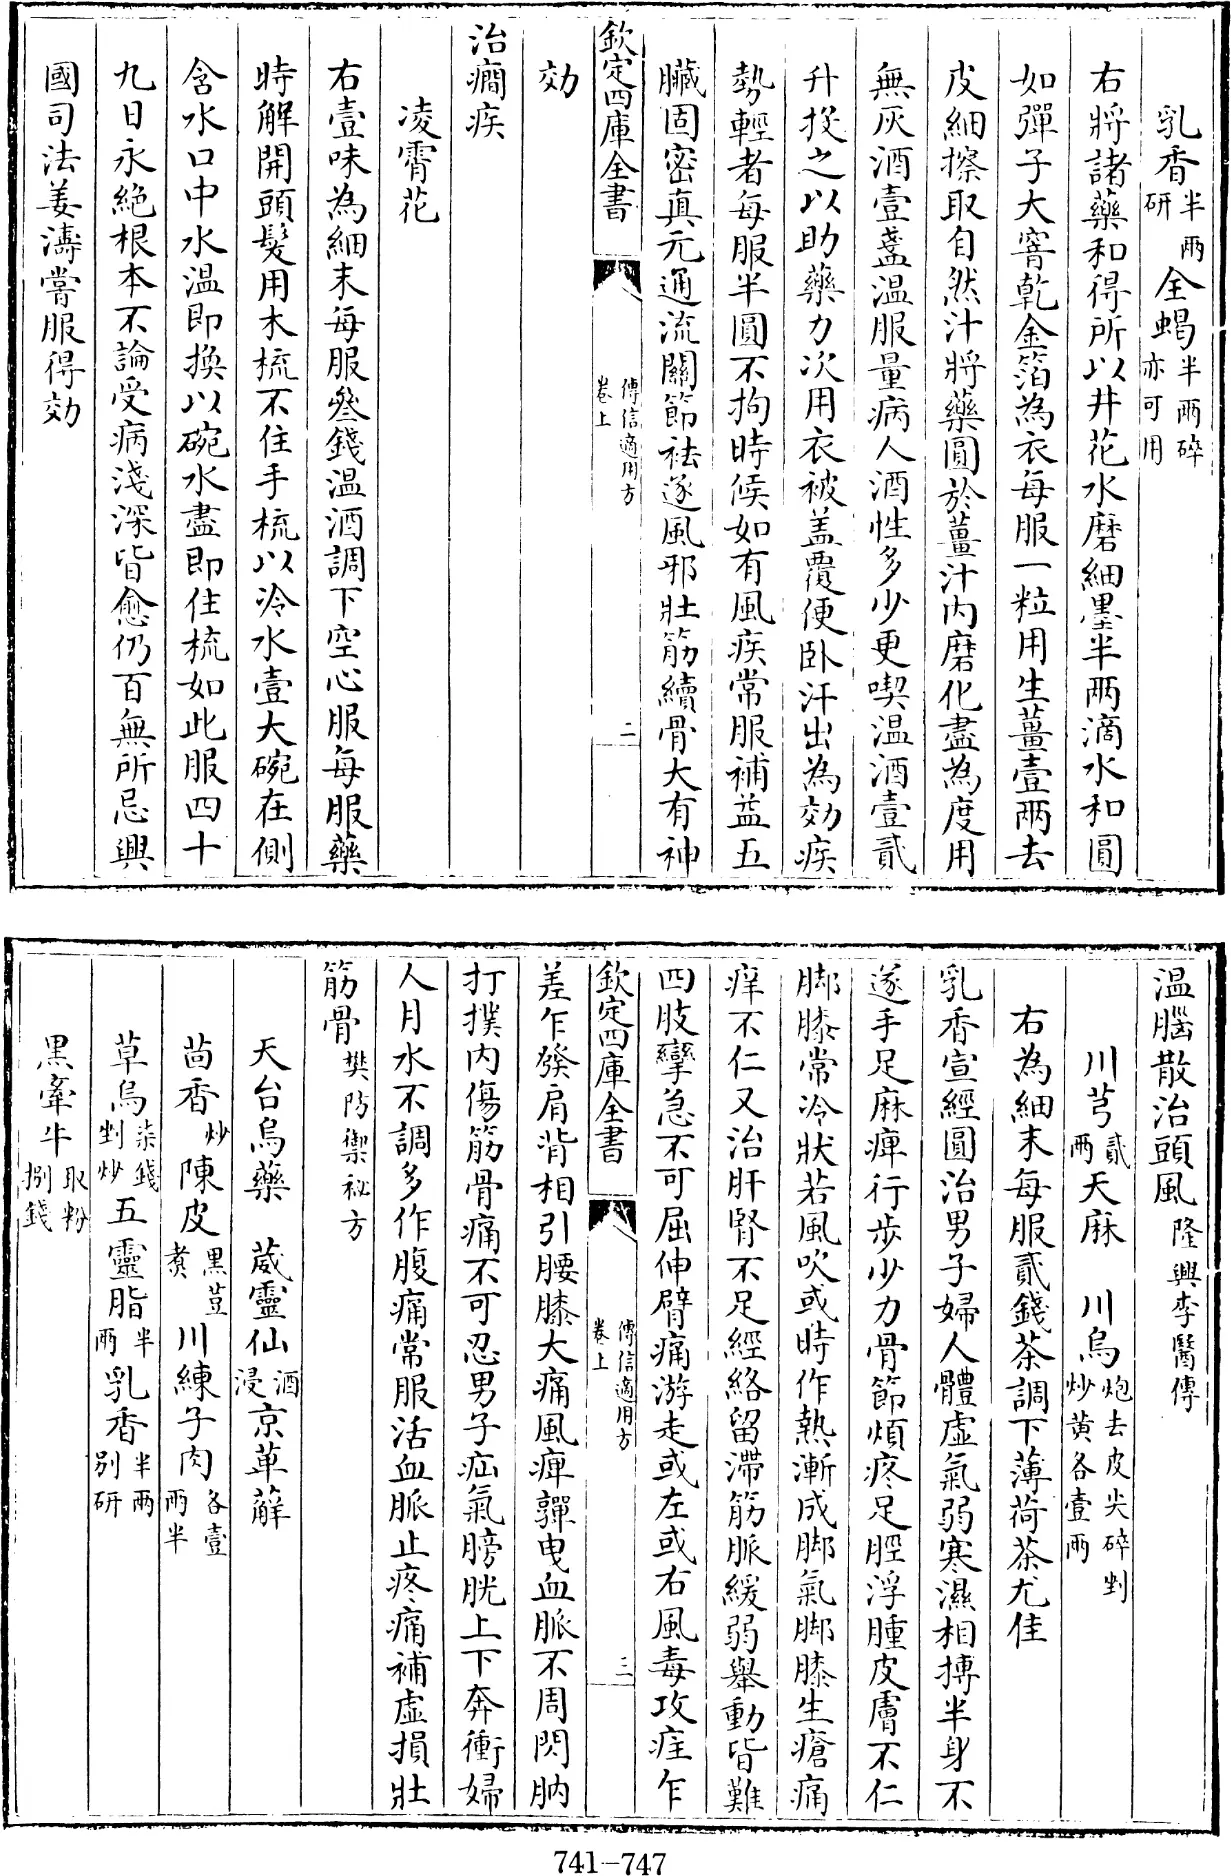 乳香半兩研全蝎半兩碎亦可用
右將諸藥和得所以井花水磨細墨半兩滴水和圓
如彈子大窨乾金箔為衣每服一粒用生薑壹兩去
皮細擦取自然汁將藥圓於薑汁内磨化盡為度用
無灰酒壹盞温服量病人酒性多少更喫温酒壹貳
升投之以助藥力次用衣被盖覆便卧汗出為効疾
勢輕者每服半圓不拘時候如有風疾常服補益五
臟固宻真元通流關節祛逐風邪壯筋續骨大有神
欽定四庫全書
傳信適用方
卷上
二
効
治癎疾
凌霄花
右壹味為細末每服叄錢温酒調下空心服每服藥
時解開頭髮用木梳不住手梳以冷水壹大碗在側
含水口中水温即換以碗水盡即住梳如此服四十
九日永絶根本不論受病淺深皆愈仍百無所忌興
國司法姜濤嘗服得効
温腦散治頭風隆興李醫傳
川芎貳兩天麻 川烏炮去皮尖碎剉炒黄各壹兩
右為細末每服貳錢茶調下薄荷茶尤佳
乳香宣經圓治男子婦人體虚氣弱寒濕相搏半身不
遂手足麻痺行步少力骨節煩疼足脛浮腫皮膚不仁
脚膝常冷狀若風吹或時作熱漸成脚氣脚膝生瘡痛
痒不仁又治肝腎不足經絡留滯筋脈緩弱舉動皆難
四肢攣急不可屈伸臂痛游走或左或右風毒攻疰乍
欽定四庫全書
傳信適用方
卷上
三
差乍發肩背相引腰膝大痛風痺嚲曳血脈不周閃肭
打撲内傷筋骨痛不可忍男子疝氣膀胱上下奔衝婦
人月水不調多作腹痛常服活血脈止疼痛補虚損壯
筋骨樊防禦祕方
天台烏藥 葳靈仙酒浸京萆薢
茴香炒陳皮黑荳煮川練子肉各壹兩半
草烏柒錢剉炒五靈脂半兩乳香半兩别研
黑牽牛取粉捌錢
741-747